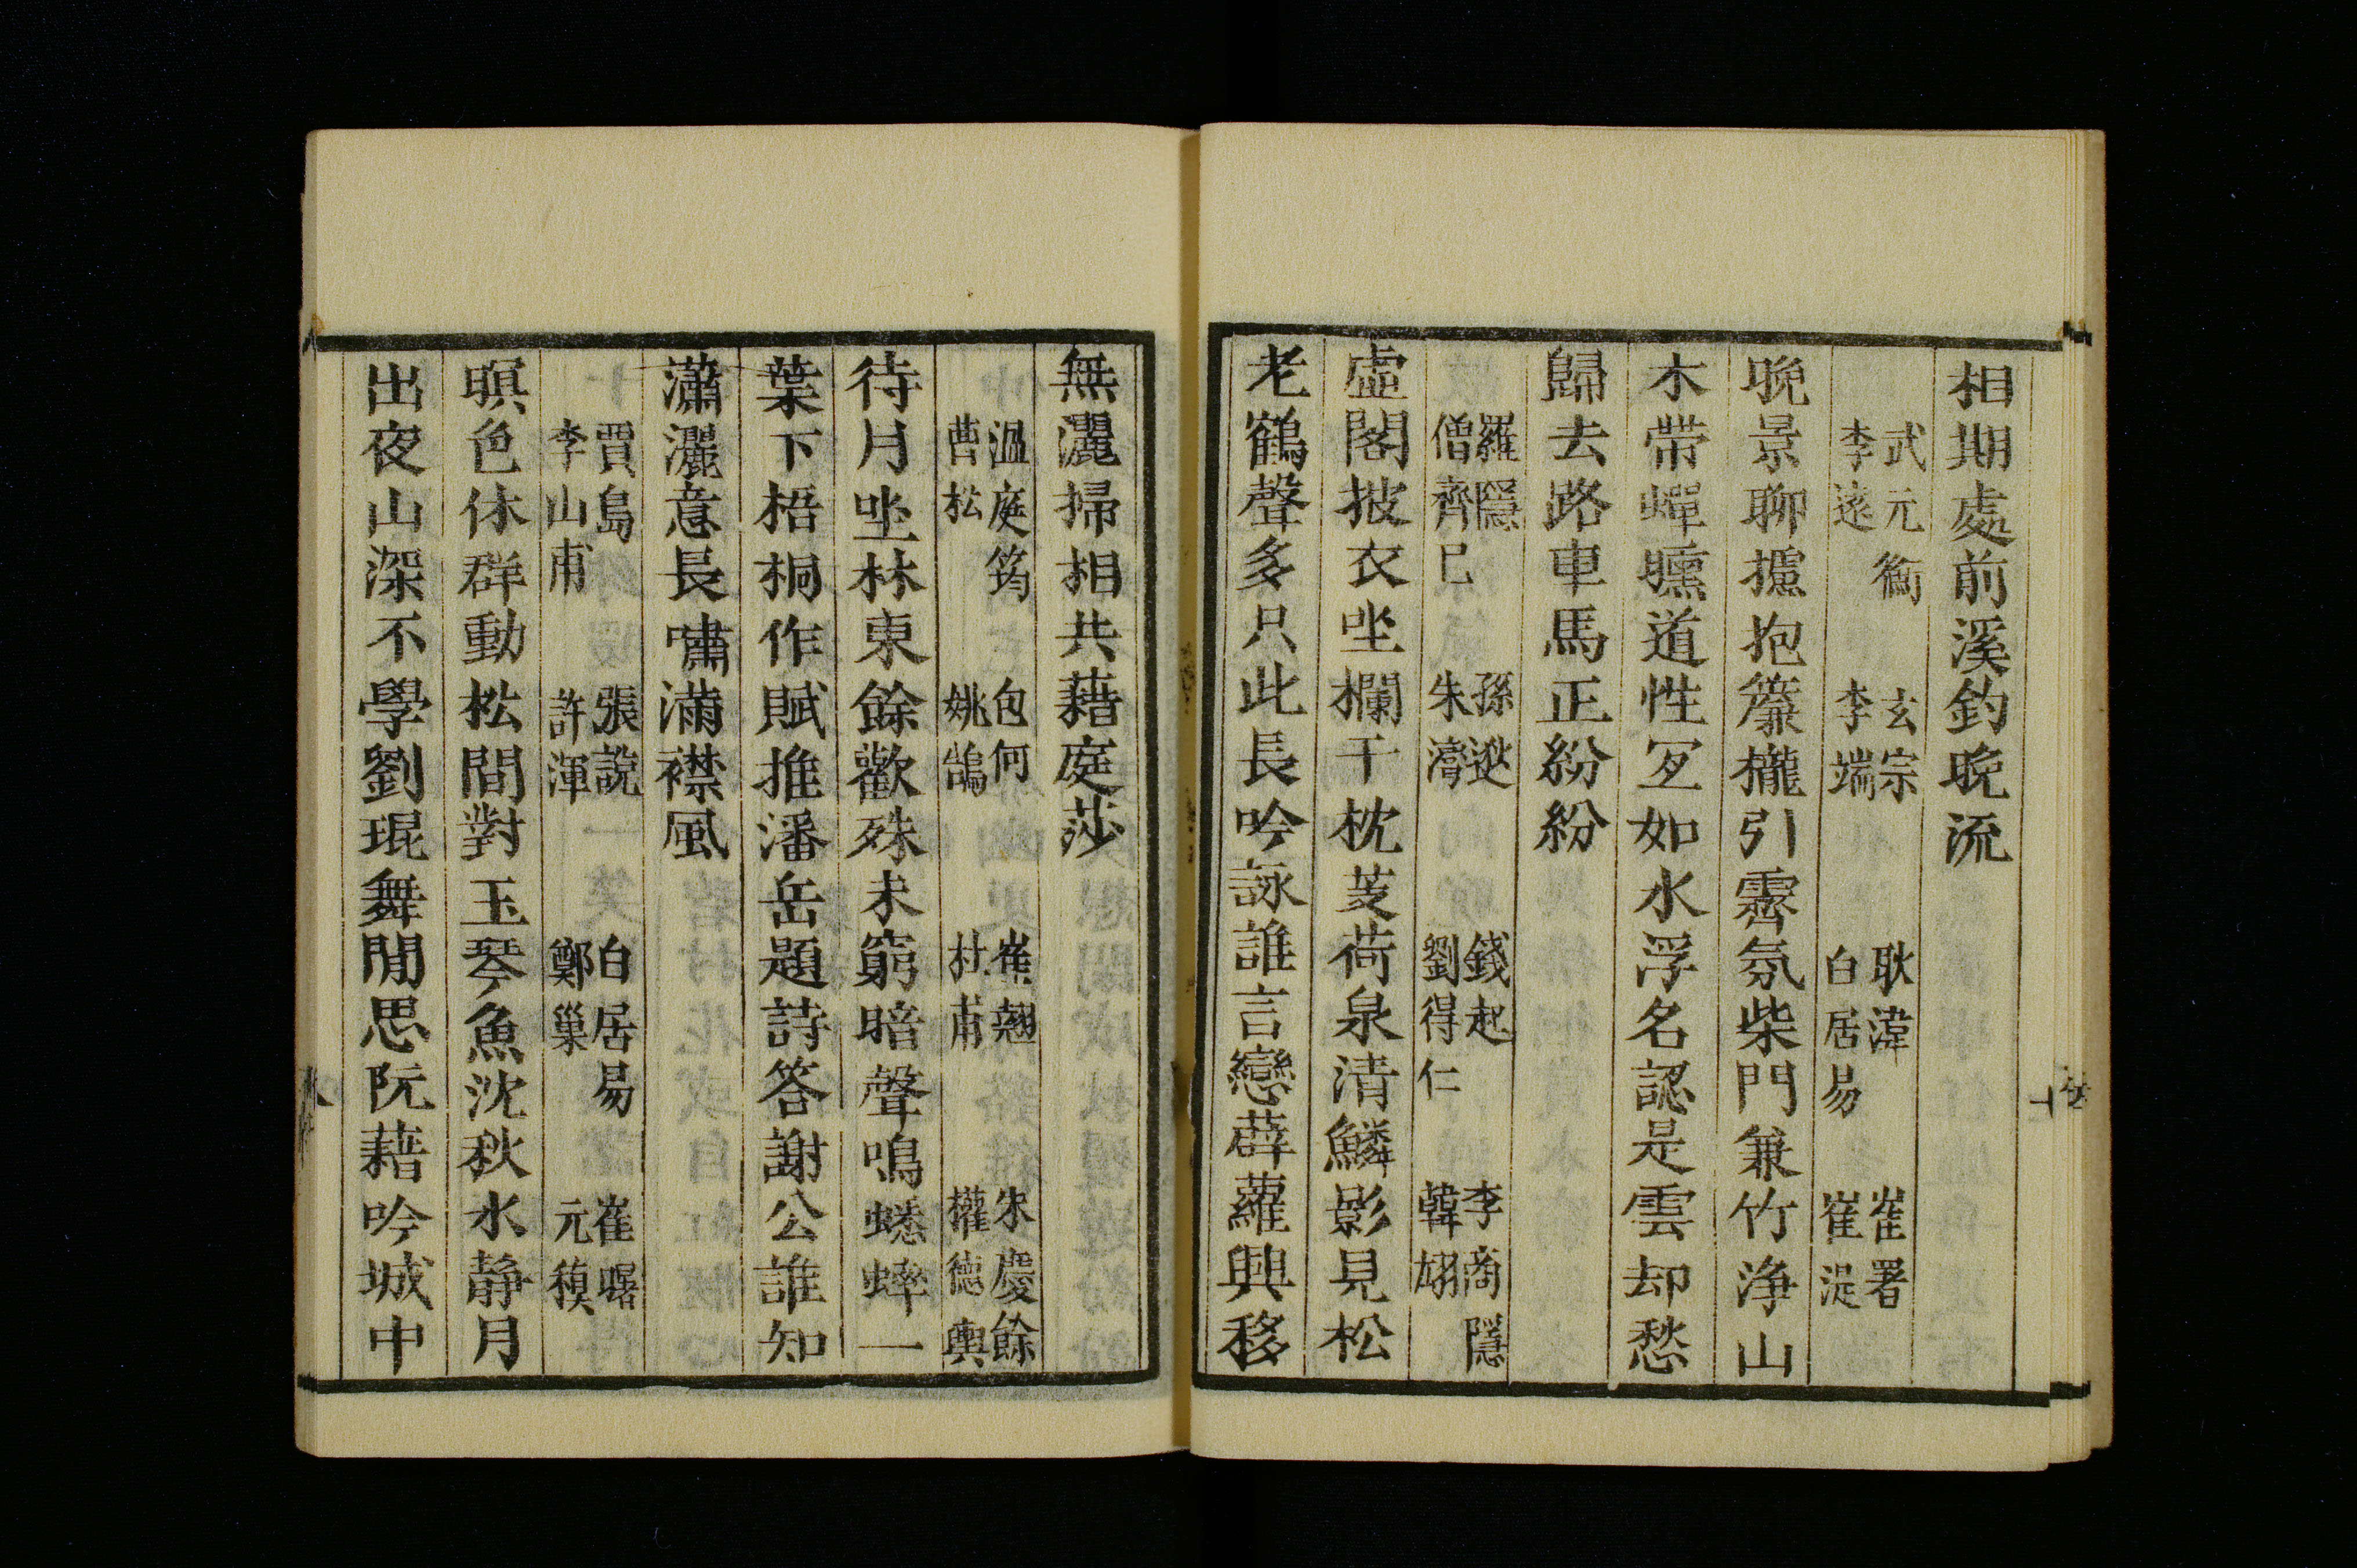 相期處前溪釣晚流
武元衡 玄宗 耿湋 崔署
李遠 李端 白居易 崔湜
晚景聊攄抱簾櫳引霽氛柴門兼竹浄山
木帶蟬曛道性宜如水浮名認是雲却愁
歸去路車馬正紛紛
羅隱 孫逖 錢起 李商隱
僧齊已 朱灣 劉得仁 韓翃
虛閣披衣坐欄干枕芰荷泉清鱗影見松
老鶴聲多只此長吟詠誰言戀薜蘿興移
無灑掃相共藉庭莎
溫庭筠 包何 崔翹 朱慶餘
曹松 姚鵠 杜甫 權德輿
待月坐林東餘歡殊未窮暗聲鳴蟋蟀一
葉下梧桐作賦推潘岳題詩答謝公誰知
瀟灑意長嘯滿襟風
賈島 張說 白居易 崔曙
李山甫 許渾 鄭巢 元稹
暝色休群動松間對玉琴魚沈秋水靜月
出夜山深不學劉琨舞閒思阮藉吟城中